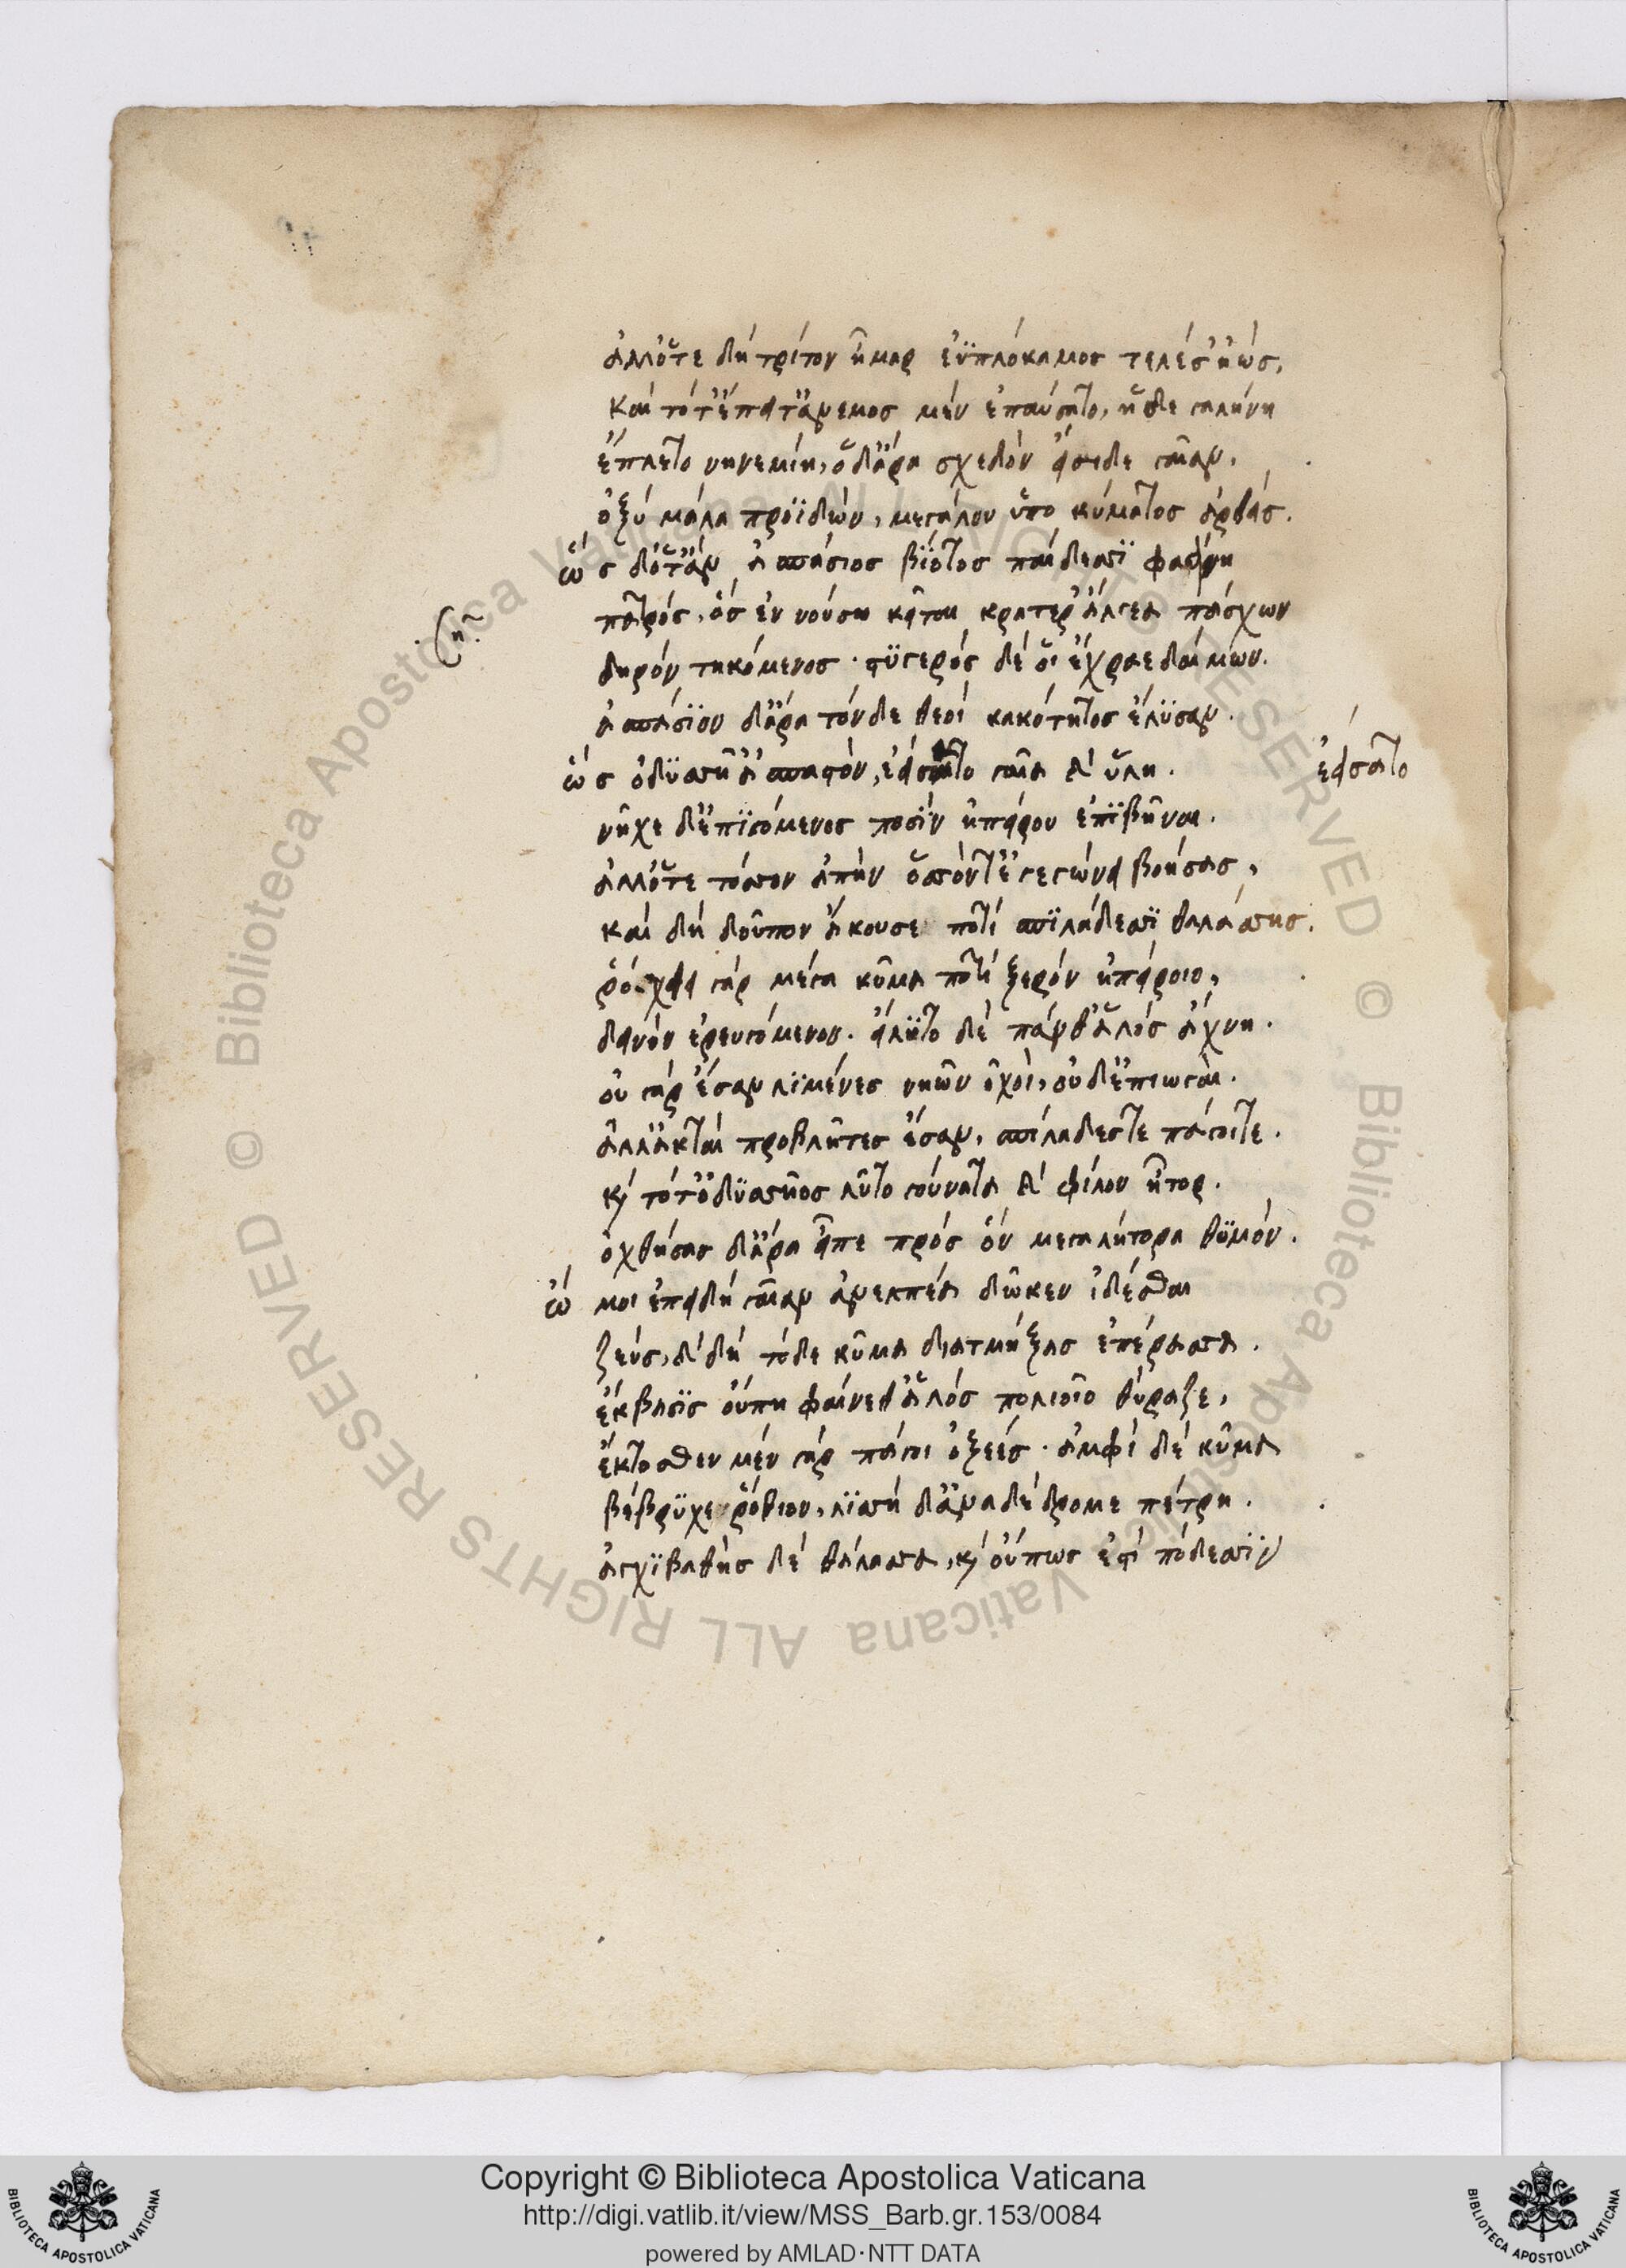 ἀλλ' ὅτε δὴ τρίτον ἦμαρ ἐϋπλόκαμος τέλεσ' ἠώς,
καὶ τότ' ἔπειτ' ἄνεμος μὲν ἐπαύσατο, ἡ δὲ γαλήνη
ἔπλετο νηνεμίη, ὁ δ' ἄρα σχεδὸν εἴσιδε γαῖαν,
ὀξὺ μάλα προϊδών, μεγάλου ὑπὸ κύματος ἀρθείς.
ὡς δ' ὅτ' ἂν ἀσπάσιος βίοτος παίδεσσι φανήῃ
πατρός, ὃς ἐν νούσῳ κεῖται κρατέρ' ἄλγεα πάσχων
δηρὸν τηκόμενος· στυγερὸς δέ οἱ ἔχραε δαίμων.
ἀσπάσιον δ' ἄρα τόνδε θεοὶ κακότητος ἔλυσαν.
ὣς ὀδυσσῆ' ἀσπαστὸν, ἐείσατο γαῖα καὶ ὕλη.
ἐείσατο
νῆχε δ' ἐπιγόμενος ποσὶν ἠπείρου ἐπιβῆναι.
ἀλλ' ὅτε τόσσον ἀπῆν ὅσσόν τ' ἐγεγώνει βοήσας,
καὶ δὴ δοῦπον ἄκουσε ποτὶ σπιλάδεσσι θαλάσσης.
ῥόχθει γὰρ μέγα κῦμα ποτὶ ξερὸν ἠπείροιο,
δεινὸν ἐρευγόμενον. εἴλυτο δὲ πάνθ' ἁλὸς ἄχνη.
οὐ γὰρ ἔσαν λιμένες νηῶν ὀχοὶ, οὐδ' ἐπιωγαί.
ἀλλ' ἀκταὶ προβλῆτες ἔσαν, σπιλάδες τε πάγοι τε.
καὶ τότ' ὀδυσσῆος λῦτο γούνατα καὶ φίλον ἦτορ.
ὀχθήσας δ' ἄρα εἶπε πρὸς ὃν μεγαλήτορα θυμόν.
ὤ μοι ἐπειδὴ γαῖαν ἀνελπέα δῶκεν ἰδέσθαι
ζεύς, καὶ δὴ τόδε κῦμα διατμήξας ἐπέρασσα.
ἔκβασις οὔπη φαίνεθ' ἁλὸς πολιοῖο θύραζε,
ἔκτοσθεν μὲν γὰρ πάγοι ὀξεές· ἀμφὶ δὲ κῦμα
βέβρυχε ῥόθιον, λισσὴ δ' ἀναδέδρομε πέτρη.
ἀγχιβαθὴς δὲ θάλασσα, καὶ οὔπως ἐστὶ πόδεσσιν
Copyright © Biblioteca Apostolica Vaticana
http://digi.vatlib.it/view/MSS_Barb.gr.153/0084
powered by AMLAD·NTT DATA
© Biblioteca Apostolica Vaticana ALL RIGHTS RESERVED
© Biblioteca Apostolica Vaticana ALL RIGHTS RESERVED
BIBLIOTECA APOSTOLICA VATICANA
BIBLIOTECA APOSTOLICA VATICANA